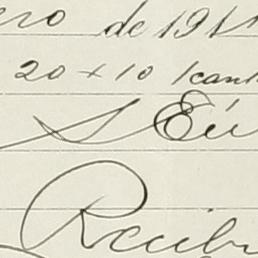 ero de 191
20 x 10 /can
S Eú
Recib